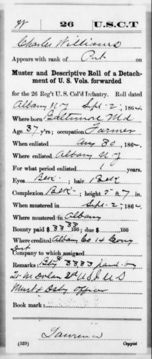 W 26 U.S.C.T
Charles Williams
Appears with rank of Pvt on
Muster and Descriptive Roll of a Detach-
ment of U. S. Vols. forwarded
for the 26 Reg't U. S. Col'd Infantry. Roll dated
Albany N Y Sept 2, 1864.
Where born Baltimore Md
Age 37 y'rs; occupation Farmer
When enlisted Aug 30, 1864.
Where enlisted Albany N Y
For what period enlisted 1 years.
Eyes Blk; hair Black
Complexion Blk; height 5 ft. 7 in.
When mustered in Sept 2, 1864.
Where mustered in Albany
Bounty paid $ 33 33/100; due $ 100
Where credited Albany Co 14 Cong
Dist
Company to which assigned
Remarks: City
U S
Must & Disby officer
Book mark:
Lawrence
(339) Copyist